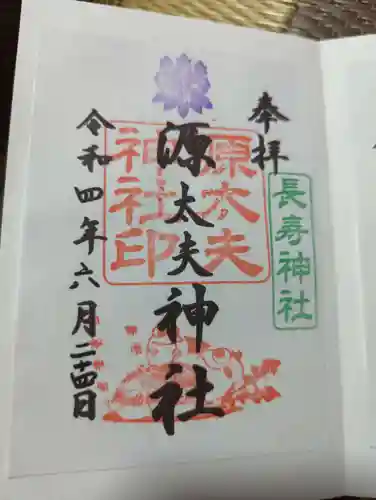 奉拝
長寿神社
源太夫
神社印
源太夫神社
令和四年六月二十四日